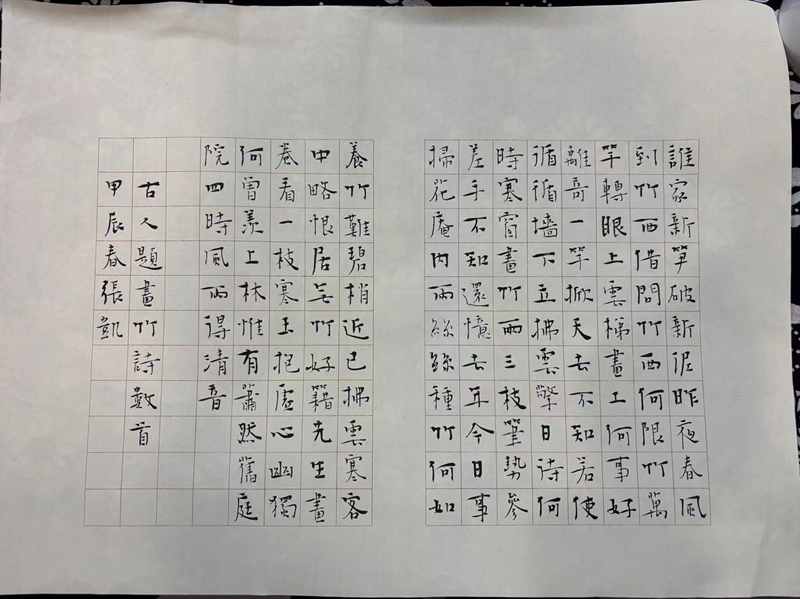 誰家新笋破新泥昨夜春風
到竹西借問竹西何限竹萬
竿轉眼上雲梯畫工何事好
離奇一竿掀天去不知若使
循循墻下立拂雲擎日待何
時寒窗畫竹兩三枝筆勢參
差手不知還憶去年今日事
掃花庵内雨絲絲種竹何如
養竹難碧梢近已拂雲寒客
中略恨居無竹好籍先生畫
卷看一枝寒玉抱虛心幽獨
何曾羨上林惟有蕭然舊庭
院四時風雨得清音
古人題畫竹詩數首
甲辰春張凱